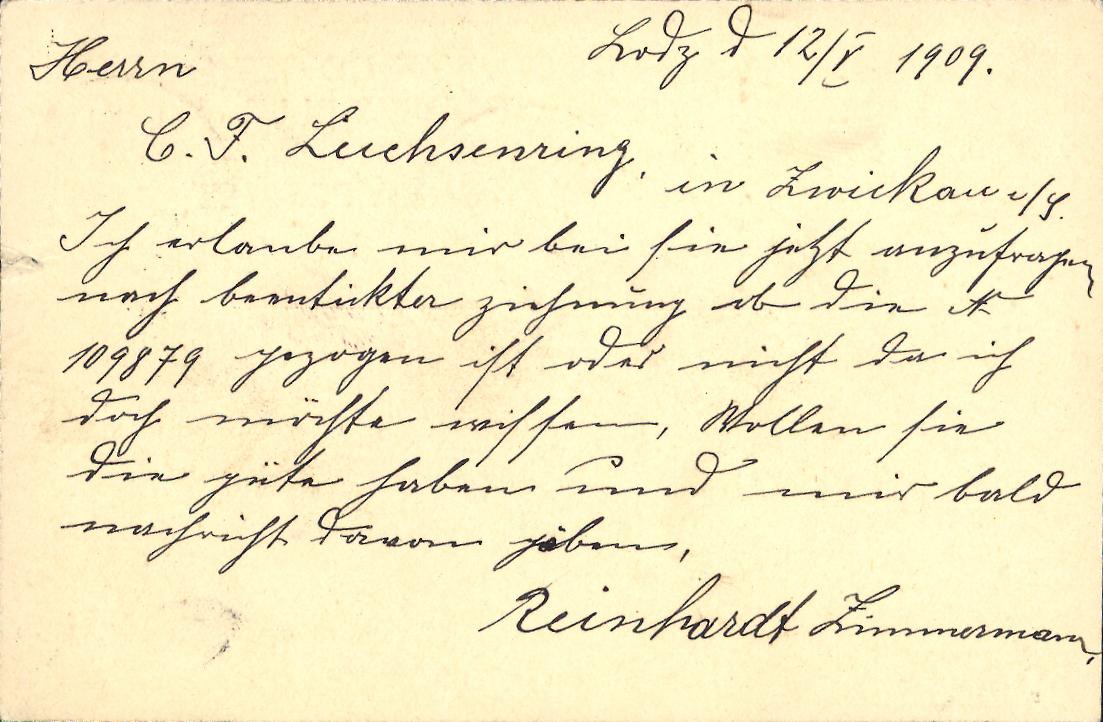 Lodz d 12/V 1909.
Herrn
C. F. Leuchsenring,
in Zwickau i/S.
Ich erlaube mir bei sie jetzt anzufragen
nach beentickter ziehnung ob die N
109879 gezogen ist oder nicht da ich
doch möchte wissen, Wollen sie
die güte haben und mir bald
nachricht davon geben,
Reinhardt Zimmermann,